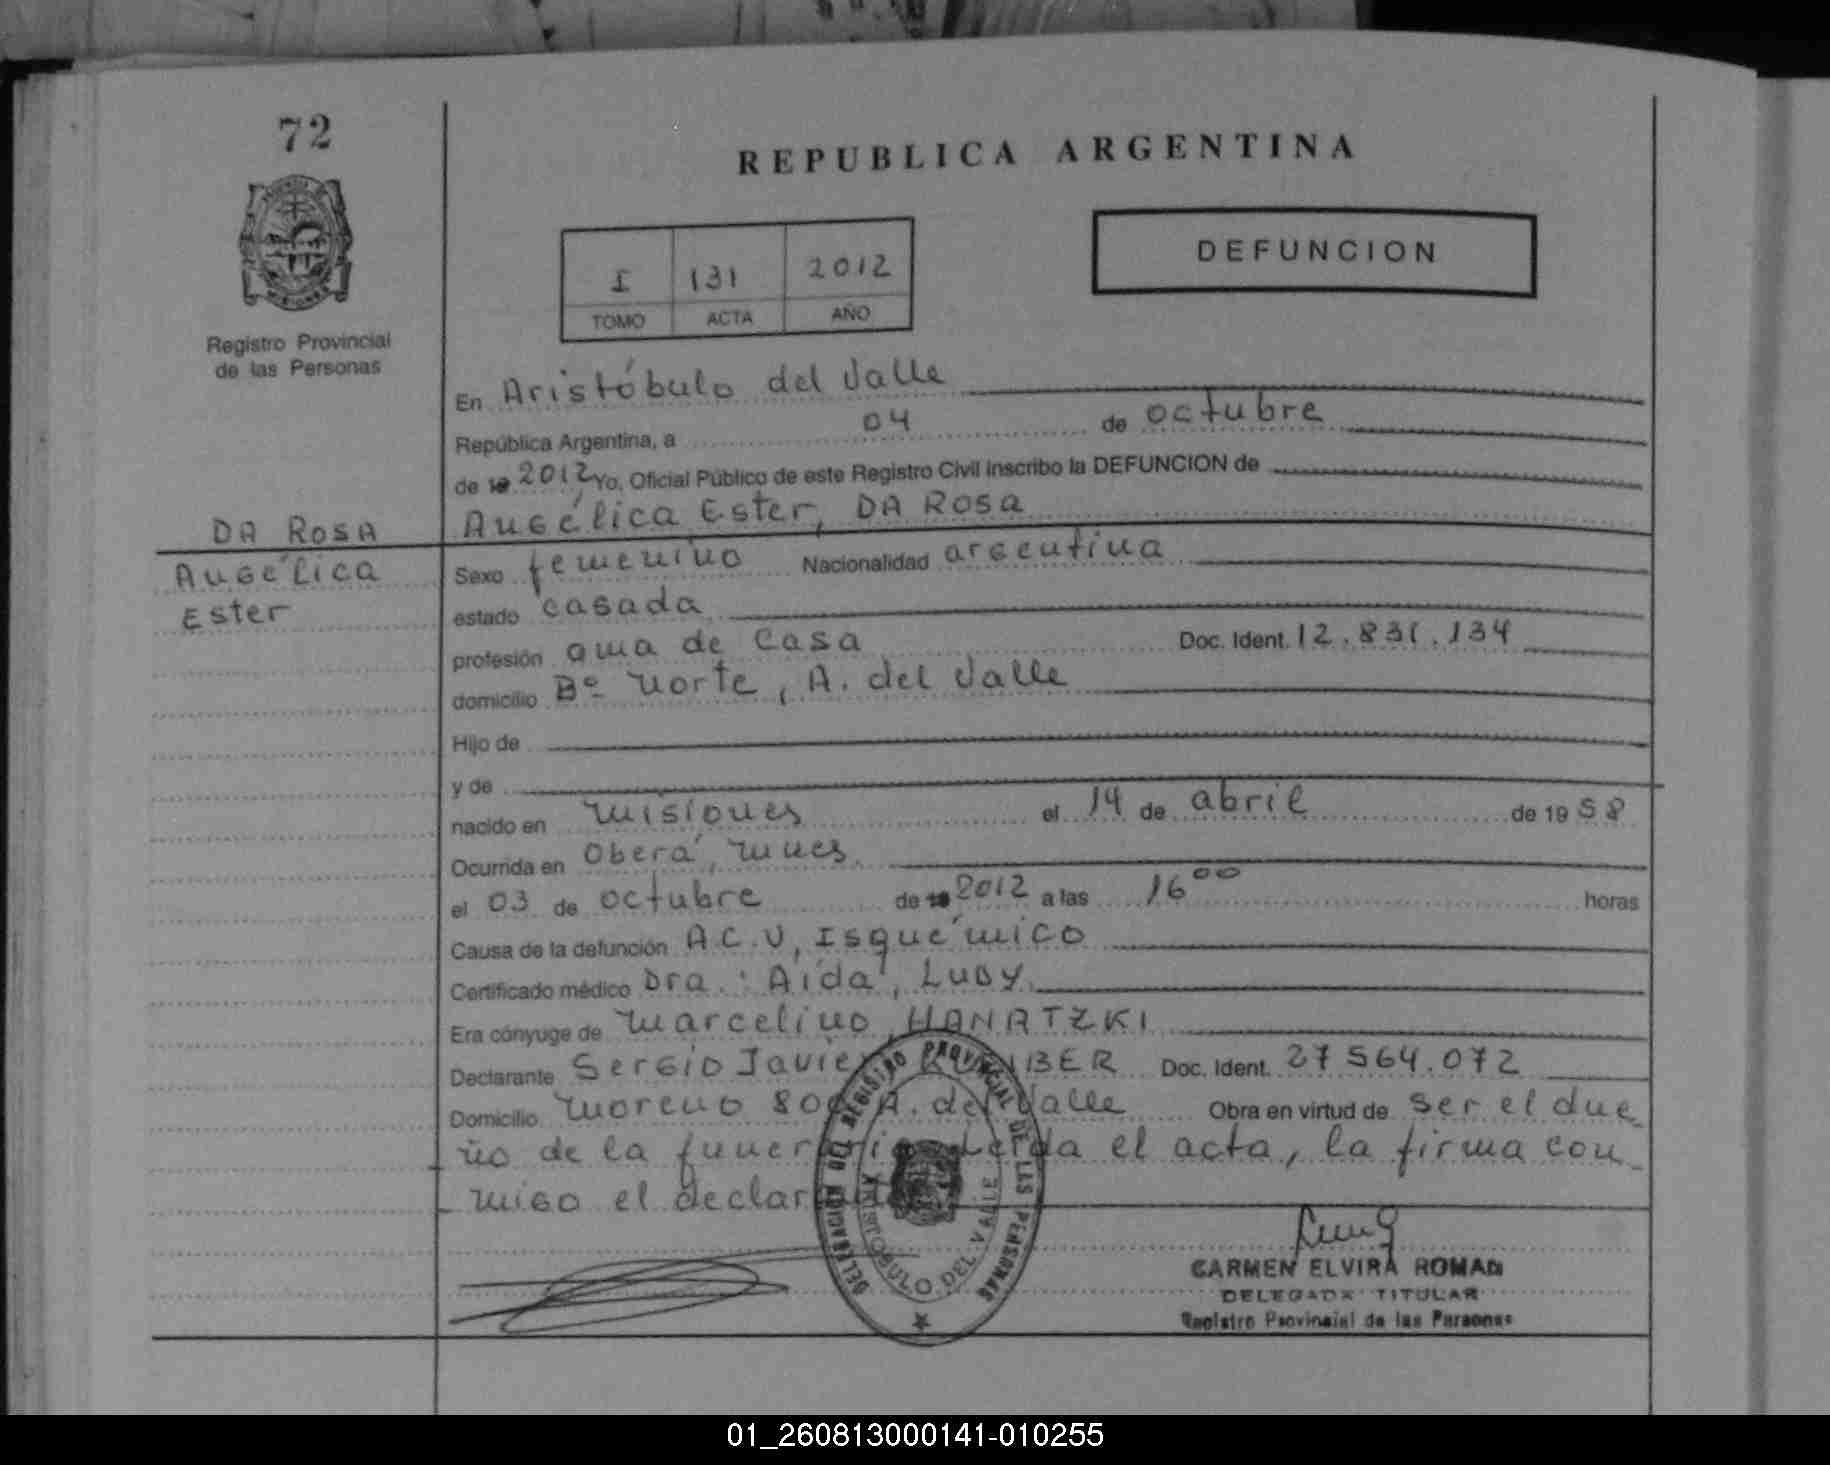 72
REPUBLICA ARGENTINA
DEFUNCION
I 131 2012
TOMO ACTA AÑO
Registro Provincial
de las Personas
En Aristóbulo del Valle
República Argentina, a 04 de octubre
de 19 2012 Yo, Oficial Público de este Registro Civil inscribo la DEFUNCION de
DA ROSA
Angélica Ester, DA ROSA
Angélica
Ester
Sexo femenino Nacionalidad argentina
estado casada
profesión ama de casa Doc. Ident. 12.831.134
domicilio Bº Norte, A. del Valle
Hijo de
y de
nacido en Misiones el 14 de abril de 19 58
Ocurrida en Oberá, Mnes.
el 03 de octubre de 19 2012 a las 16 00 horas
Causa de la defunción A.C.V, Isquémico
Certificado médico Dra.: Aída, LUBY
Era cónyuge de Marcelino, HANATZKI
Declarante Sergio Javier Doc. Ident. 27564.072
Domicilio Moreno A. del Valle Obra en virtud de ser el due
ño de la el acta, la firma con
migo el
DELEGACION DEL REGISTRO PROVINCIAL DE LAS PERSONAS
ARISTOBULO DEL VALLE
CARMEN ELVIRA ROMAN
DELEGADA TITULAR
Registro Provincial de las Personas
01_260813000141-010255